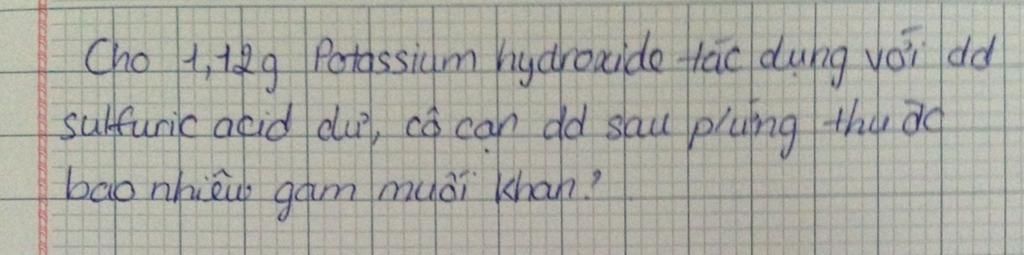 Cho 1,12g Potassium hydroxide tác dụng với dd
sulfuric acid dư, cô cạn dd sau p/ứng thu đc
bao nhiêu gam muối khan?